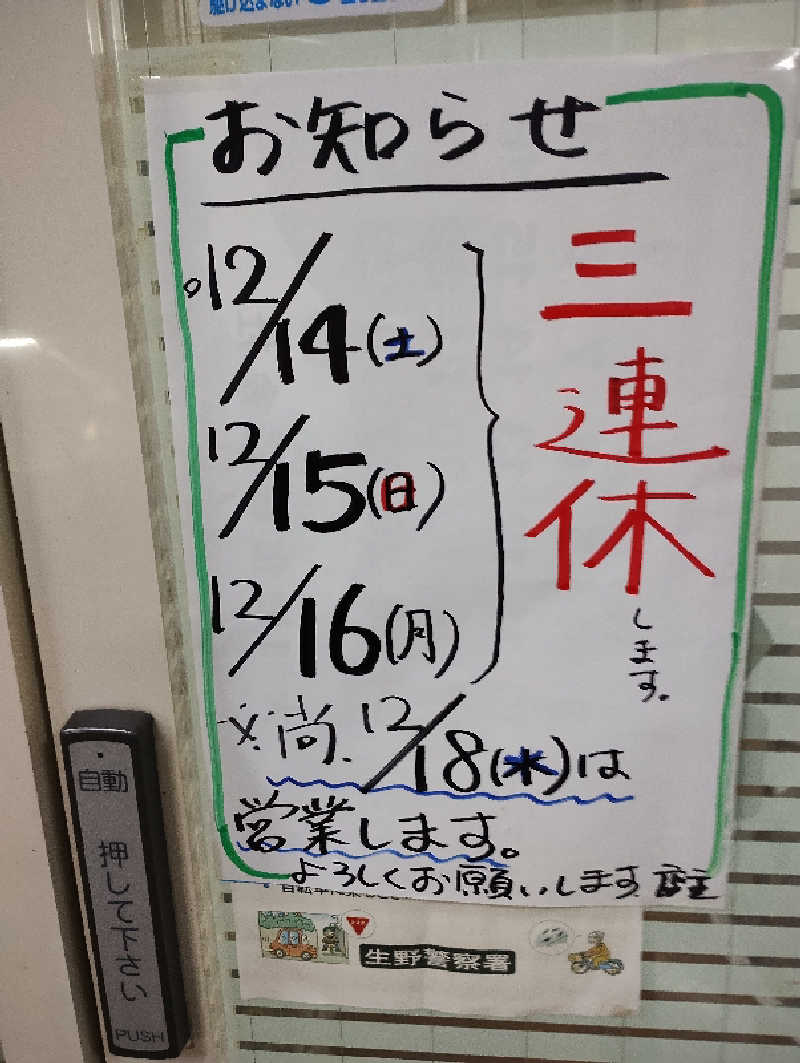 駆け込まない
お知らせ
12/14(土)
12/15(日)
12/16(月)
三連休
します。
※尚、12/18(水)は
営業します。
よろしくお願いします 店主
生野警察署
自動
押して下さい
PUSH